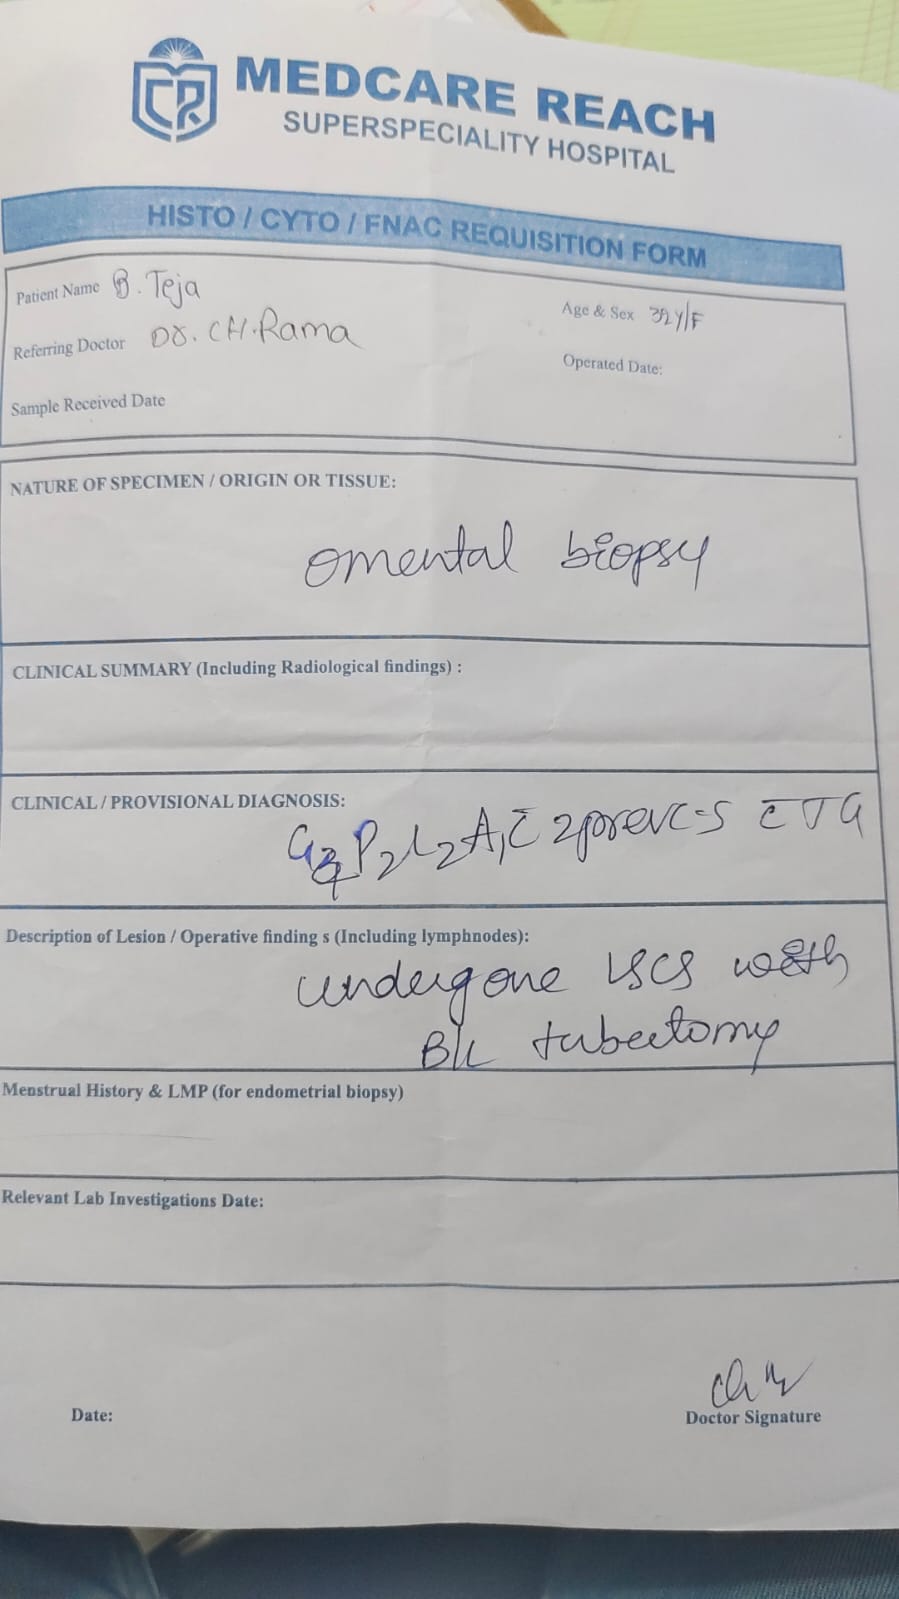 CR
MEDCARE REACH
SUPERSPECIALITY HOSPITAL
HISTO / CYTO / FNAC REQUISITION FORM
Patient Name B. Teja
Age & Sex 32Y/F
Referring Doctor Dr. CH. Rama
Operated Date:
Sample Received Date
NATURE OF SPECIMEN / ORIGIN OR TISSUE:
omental biopsy
CLINICAL SUMMARY (Including Radiological findings) :
CLINICAL / PROVISIONAL DIAGNOSIS:
P2L2A1 c̄ 2prevc-s c̄
Description of Lesion / Operative finding s (Including lymphnodes):
undergone LSCS with
B/L tubectomy
Menstrual History & LMP (for endometrial biopsy)
Relevant Lab Investigations Date:
Date:
Doctor Signature